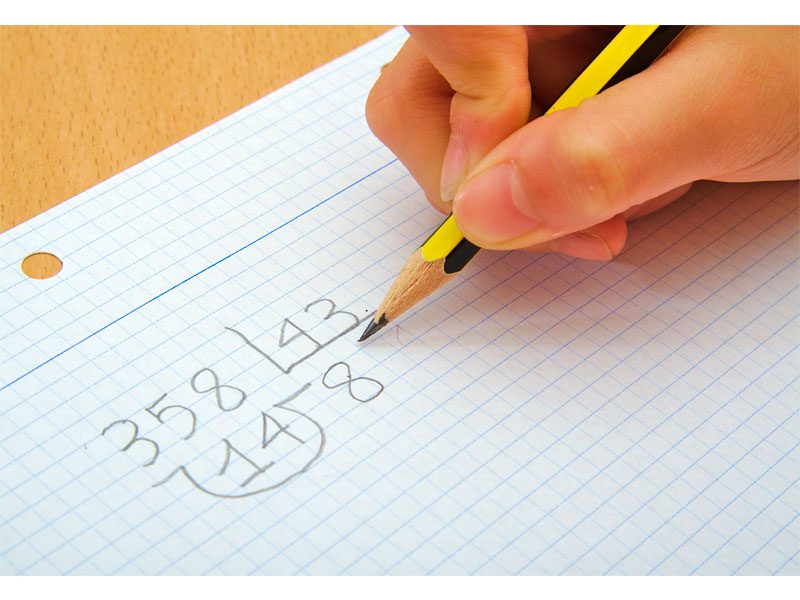 358 43
14 8